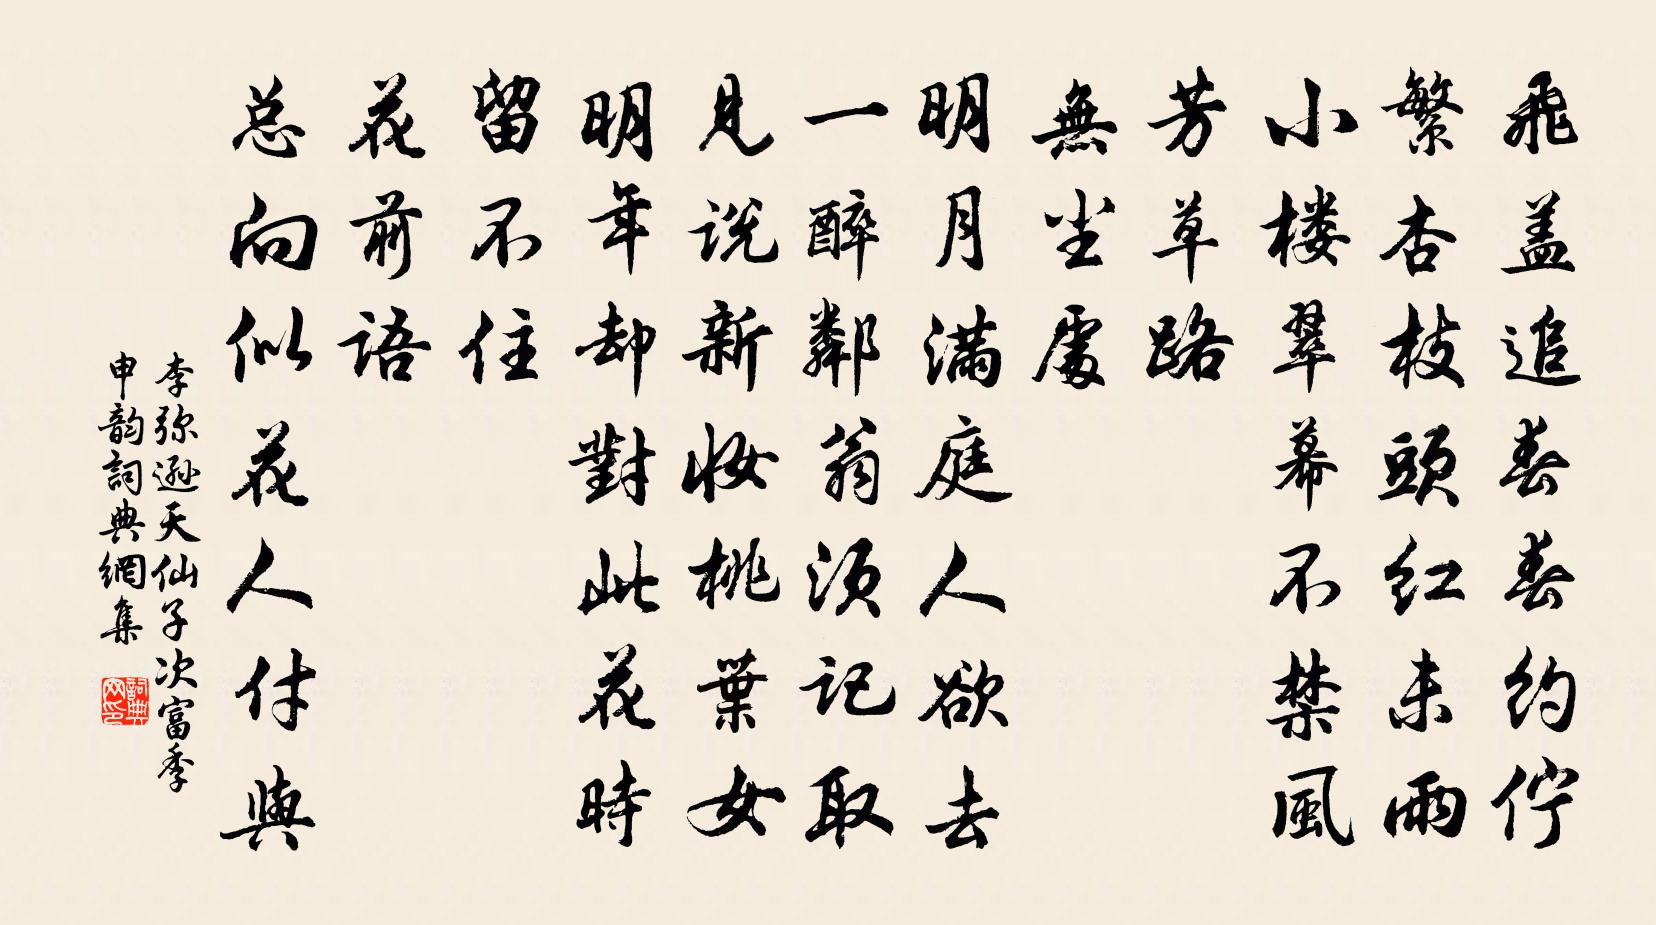 飛盖追春春約佇
繁杏枝頭红未雨
小楼翠幕不禁風
芳草路
無尘處
明月满庭人欲去
一醉鄰翁须记取
見说新妆桃葉女
明年却對此花時
留不住
花前語
总向似花人付與
李弥遜天仙子次富季
申韵詞典網集
詞典网印